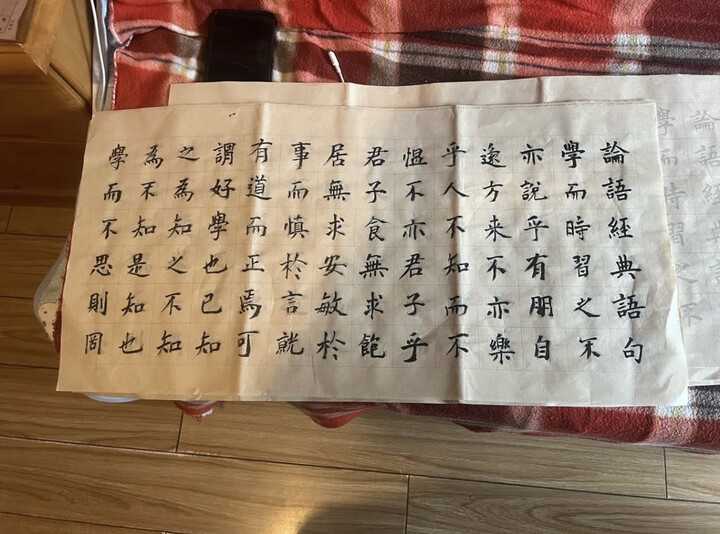 論語經典語句
學而時習之不
亦說乎有朋自
遠方来不亦樂
乎人不知而不
愠不亦君子乎
君子食無求飽
居無求安敏於
事而慎於言就
有道而正焉可
謂好學也已知
之為知之不知
為不知是知也
學而不思則罔
論語經
學而時習之不